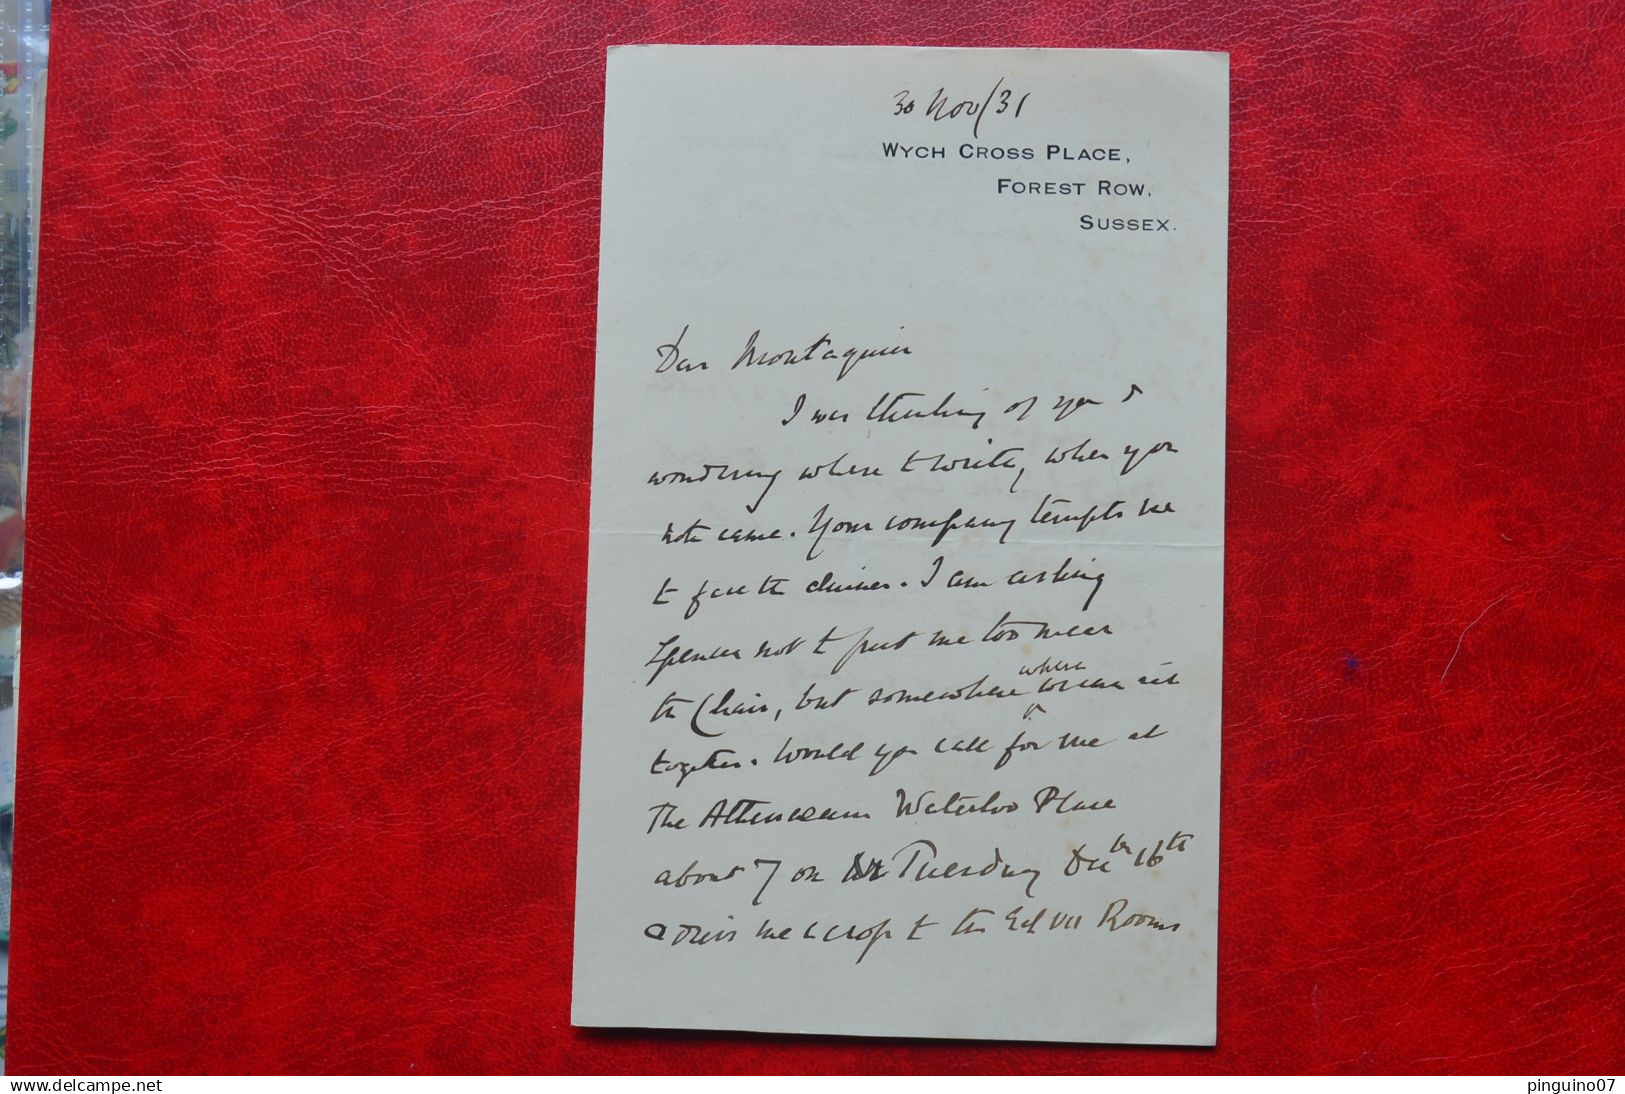 30 Nov/31
WYCH CROSS PLACE,
FOREST ROW,
SUSSEX.
Dear Montagnier
I was thinking of you &
wondering where to write, when your
note came. Your company tempts me
to face the dinner. I am asking
Spencer not to put me too near
the Chair, but somewhere where we can sit
together. Would you call for me at
The Athenaeum Waterloo Place
about 7 on Tuesday Dec 16th
& drive me across to the Ed VII Rooms
www.delcampe.net
pinguino07